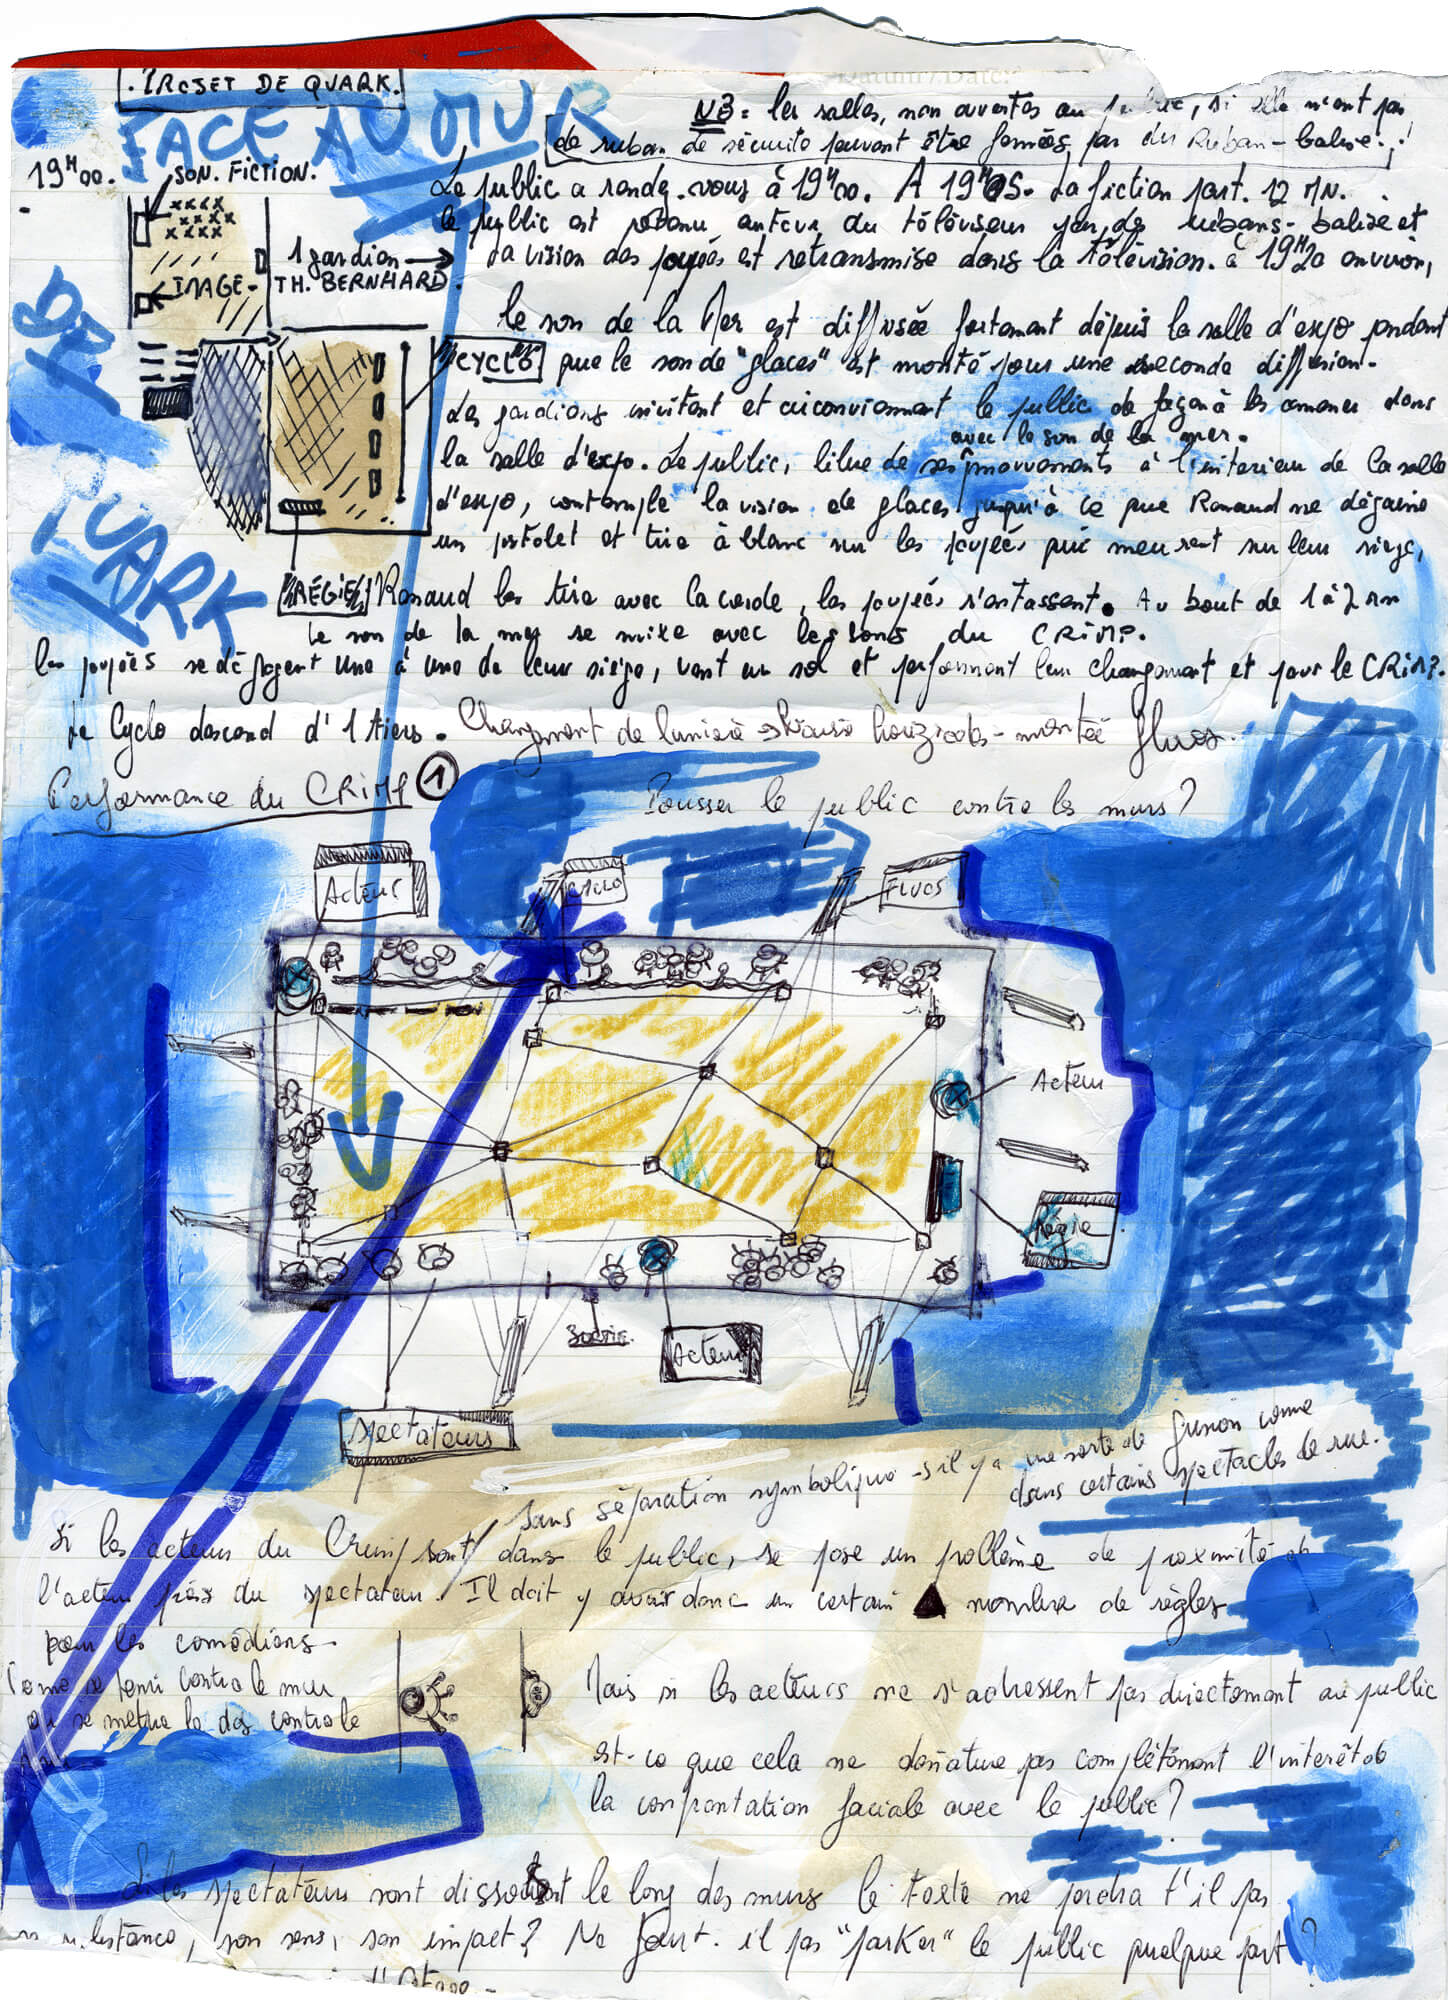 .PROJET DE QUARK.
FACE AU MUR
LAB
QUARK
NB = les salles, non ouvertes au public, si elle n'ont pas
de ruban de sécurité peuvent être fermées par du Ruban-balise.!
19H00.
SON. FICTION.
xxxx
xxxxx
xxxx
1 gardien →
TH. BERNHARD.
IMAGE-
Le public a rendez-vous à 19H00. A 19H05- La fiction part. 12 MN.
le public est retenu autour du téléviseur par des rubans-balise et
la vision des poupées est retransmise dans la télévision. à 19H20 environ,
le son de la Mer est diffusée fortement depuis la salle d'expo pendant
CYCLO
que le son de "glaces" est monté pour une seconde diffusion.
Les gardiens invitent et circonviennent le public de façon à les amener dans
avec le son de la mer.
la salle d'expo. Le public, libre de ses mouvements à l'interieur de la salle
d'expo, contemple la vision de glaces jusqu'à ce que Renaud ne dégaine
un pistolet et tire à blanc sur les poupées qui meurent sur leur siege,
RÉGIE
Renaud les tire avec la corde, les poupées s'entassent. Au bout de 1 à 2 mn
le son de la mer se mixe avec les sons du CRIMP.
les poupées se dégagent une à une de leur siège, vont au sol et performent leur changement et pour le CRIMP.
le Cyclo descend d'1 tiers. Changement de lumière horizodes-montée fluos.
Performance du CRIMP 1
Pousser le public contre les murs?
Acteur
CYCLO
FLUOS
Acteur
Régie
Sortie.
Acteur
Spectateurs
sans séparation symbolique - s'il y a une sorte de fusion comme
dans certains spectacles de rue.
Si les acteurs du Crimp sont dans le public, se pose un problème de proximité de
l'acteur près du spectateur. Il doit y avoir donc un certain nombre de règles
pour les comédiens
Comme se tenir contre le mur
ou se mettre le dos contre le
mur
Mais si les acteurs ne s'adressent pas directement au public
est-ce que cela ne dénature pas complètement l'interêt de
la confrontation faciale avec le public?
Si les spectateurs sont dissout le long des murs le texte ne perdra t'il pas
substance, son sens, son impact? Ne faut-il pas "parker" le public quelque part?